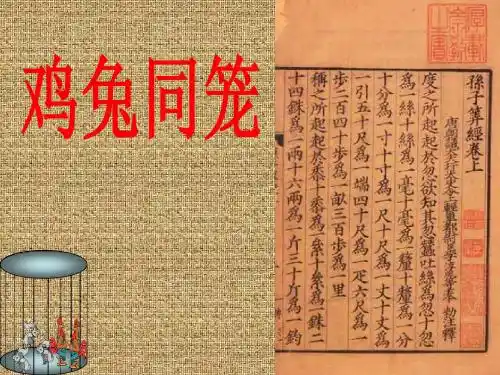 鸡兔同笼
孫子筭經卷上
度之所起起於忽欲知其忽蠶吐絲爲忽十忽
爲一絲十絲爲一毫十毫爲一釐十釐爲一分
十分爲一寸十寸爲一尺十尺爲一丈十丈爲
一引五十尺爲一端四十尺爲一疋六尺爲一
步二百四十步爲一畝三百步爲一里
稱之所起起於黍十黍爲一絫十絫爲一銖二
十四銖爲一兩十六兩爲一斤三十斤爲一鈞